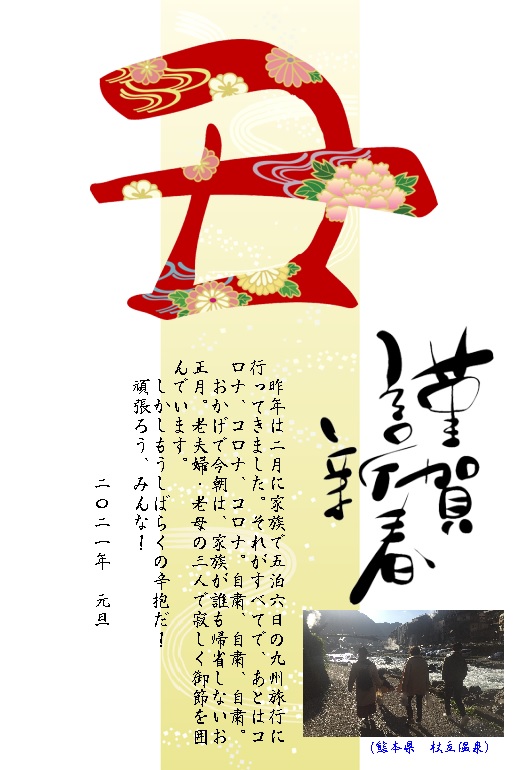 丑
謹賀新春
昨年は二月に家族で五泊六日の九州旅行に
行ってきました。それがすべてで、あとはコ
ロナ、コロナ、コロナ。自粛、自粛、自粛。
おかげで今朝は、家族が誰も帰省しないお
正月。老夫婦・老母の三人で寂しく御節を囲
んでいます。
しかしもうしばらくの辛抱だ!
頑張ろう、みんな!
二〇二一年 元旦
(熊本県 杖立温泉)